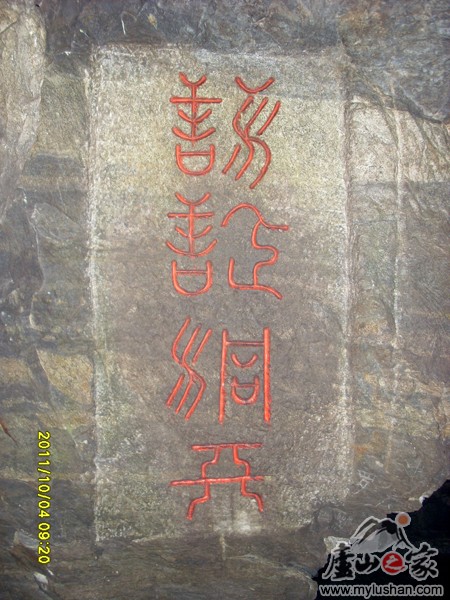 詠真洞天
2011/10/04 09:20
廬山之家
www.mylushan.com